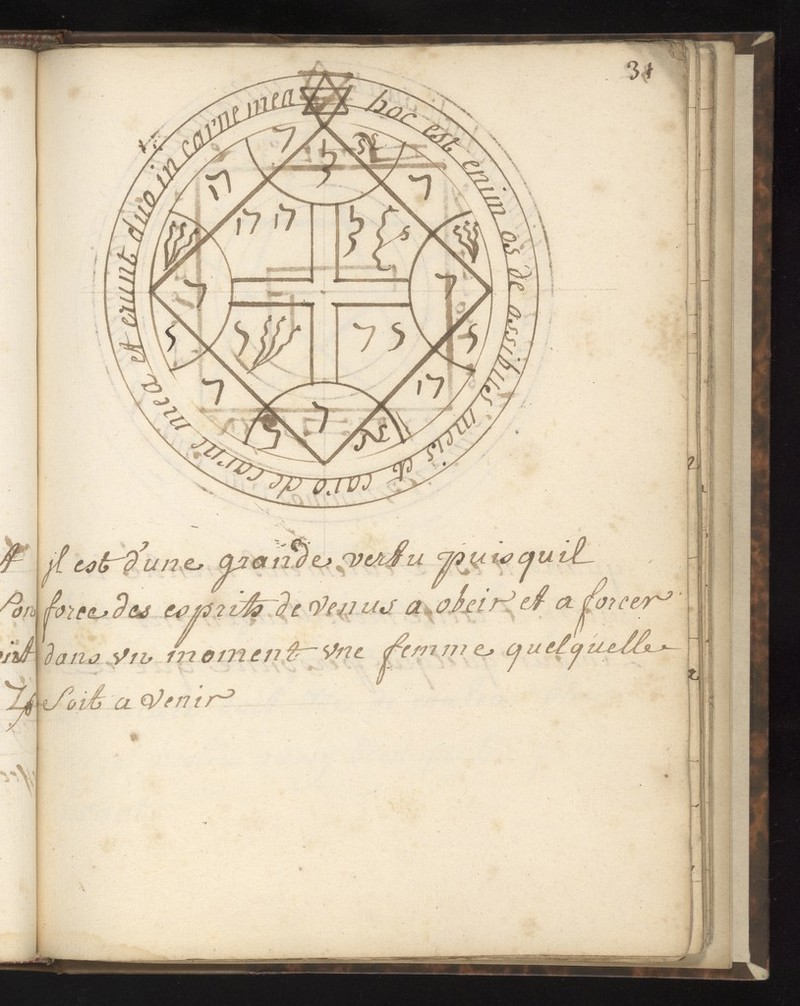 31
hoc est enim os de ossibus meis et caro de carne mea et erunt duo in carne mea
jl est d'une grande vertu puisquil
force des esprits de venus a obeir et a forcer
dans vn moment vne femme quelquelle
soit a venir